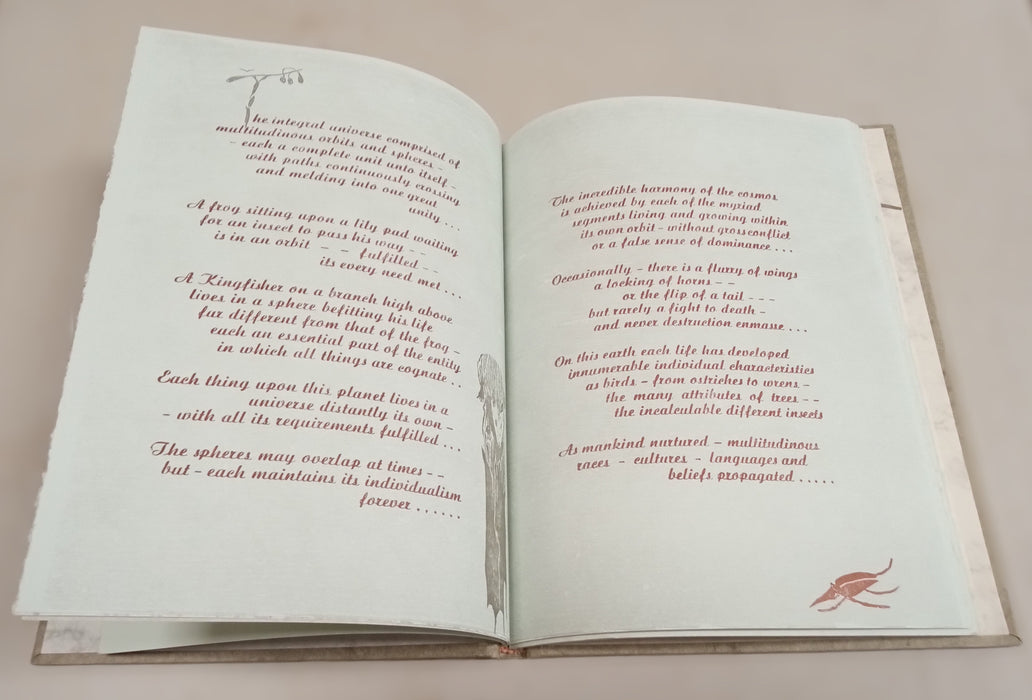 The integral universe comprised of
multitudinous orbits and spheres -
- each a complete unit unto itself -
with paths continuously crossing
and melding into one great
unity . . .
A frog sitting upon a lily pad waiting
for an insect to pass his way - -
is in an orbit - - fulfilled - -
its every need met . . .
A Kingfisher on a branch high above
lives in a sphere befitting his life
far different from that of the frog -
each an essential part of the entity
in which all things are cognate . . .
Each thing upon this planet lives in a
universe distantly its own -
- with all its requirements fulfilled . . .
The spheres may overlap at times - -
but - each maintains its individualism
forever . . . . . .
The incredible harmony of the cosmos
is achieved by each of the myriad
segments living and growing within
its own orbit - without gross conflict
or a false sense of dominance . . .
Occasionally - there is a flurry of wings
a locking of horns - -
or the flip of a tail - - -
but rarely a fight to death -
and never destruction enmasse . . . .
On this earth each life has developed
innumerable individual characteristics
as birds - from ostriches to wrens -
the many attributes of trees - -
the incalculable different insects
As mankind nurtured - multitudinous
races - cultures - languages and
beliefs propagated . . . . .